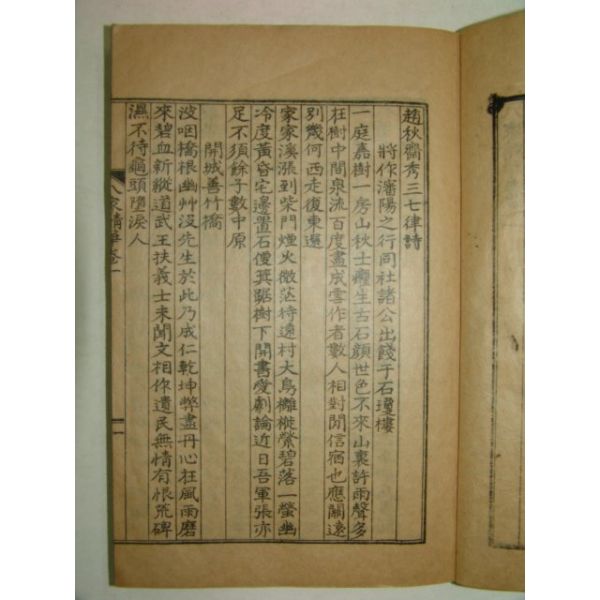 趙秋齋秀三七律詩
將作瀋陽之行同社諸公出餞于石瓊樓
一庭嘉樹一房山秋士癯生古石顔世色不來山裏許雨聲多
在樹中間泉流百度盡成雲作者數人相對閒信宿也應關遠
別幾何西走復東還
家家溪漲到柴門煙火微茫待遠村大鳥離褷縈碧落一螢幽
冷度黃昏宅邊置石便箕踞樹下開書愛劇論近日吾軍張亦
足不須餘子數中原
開城善竹橋
波咽橋根幽艸沒先生於此乃成仁乾坤弊盡丹心在風雨磨
來碧血新縱道武王扶義士未聞文相作遺民無情有恨荒碑
濕不待龜頭墮淚人
八家精華卷一
一